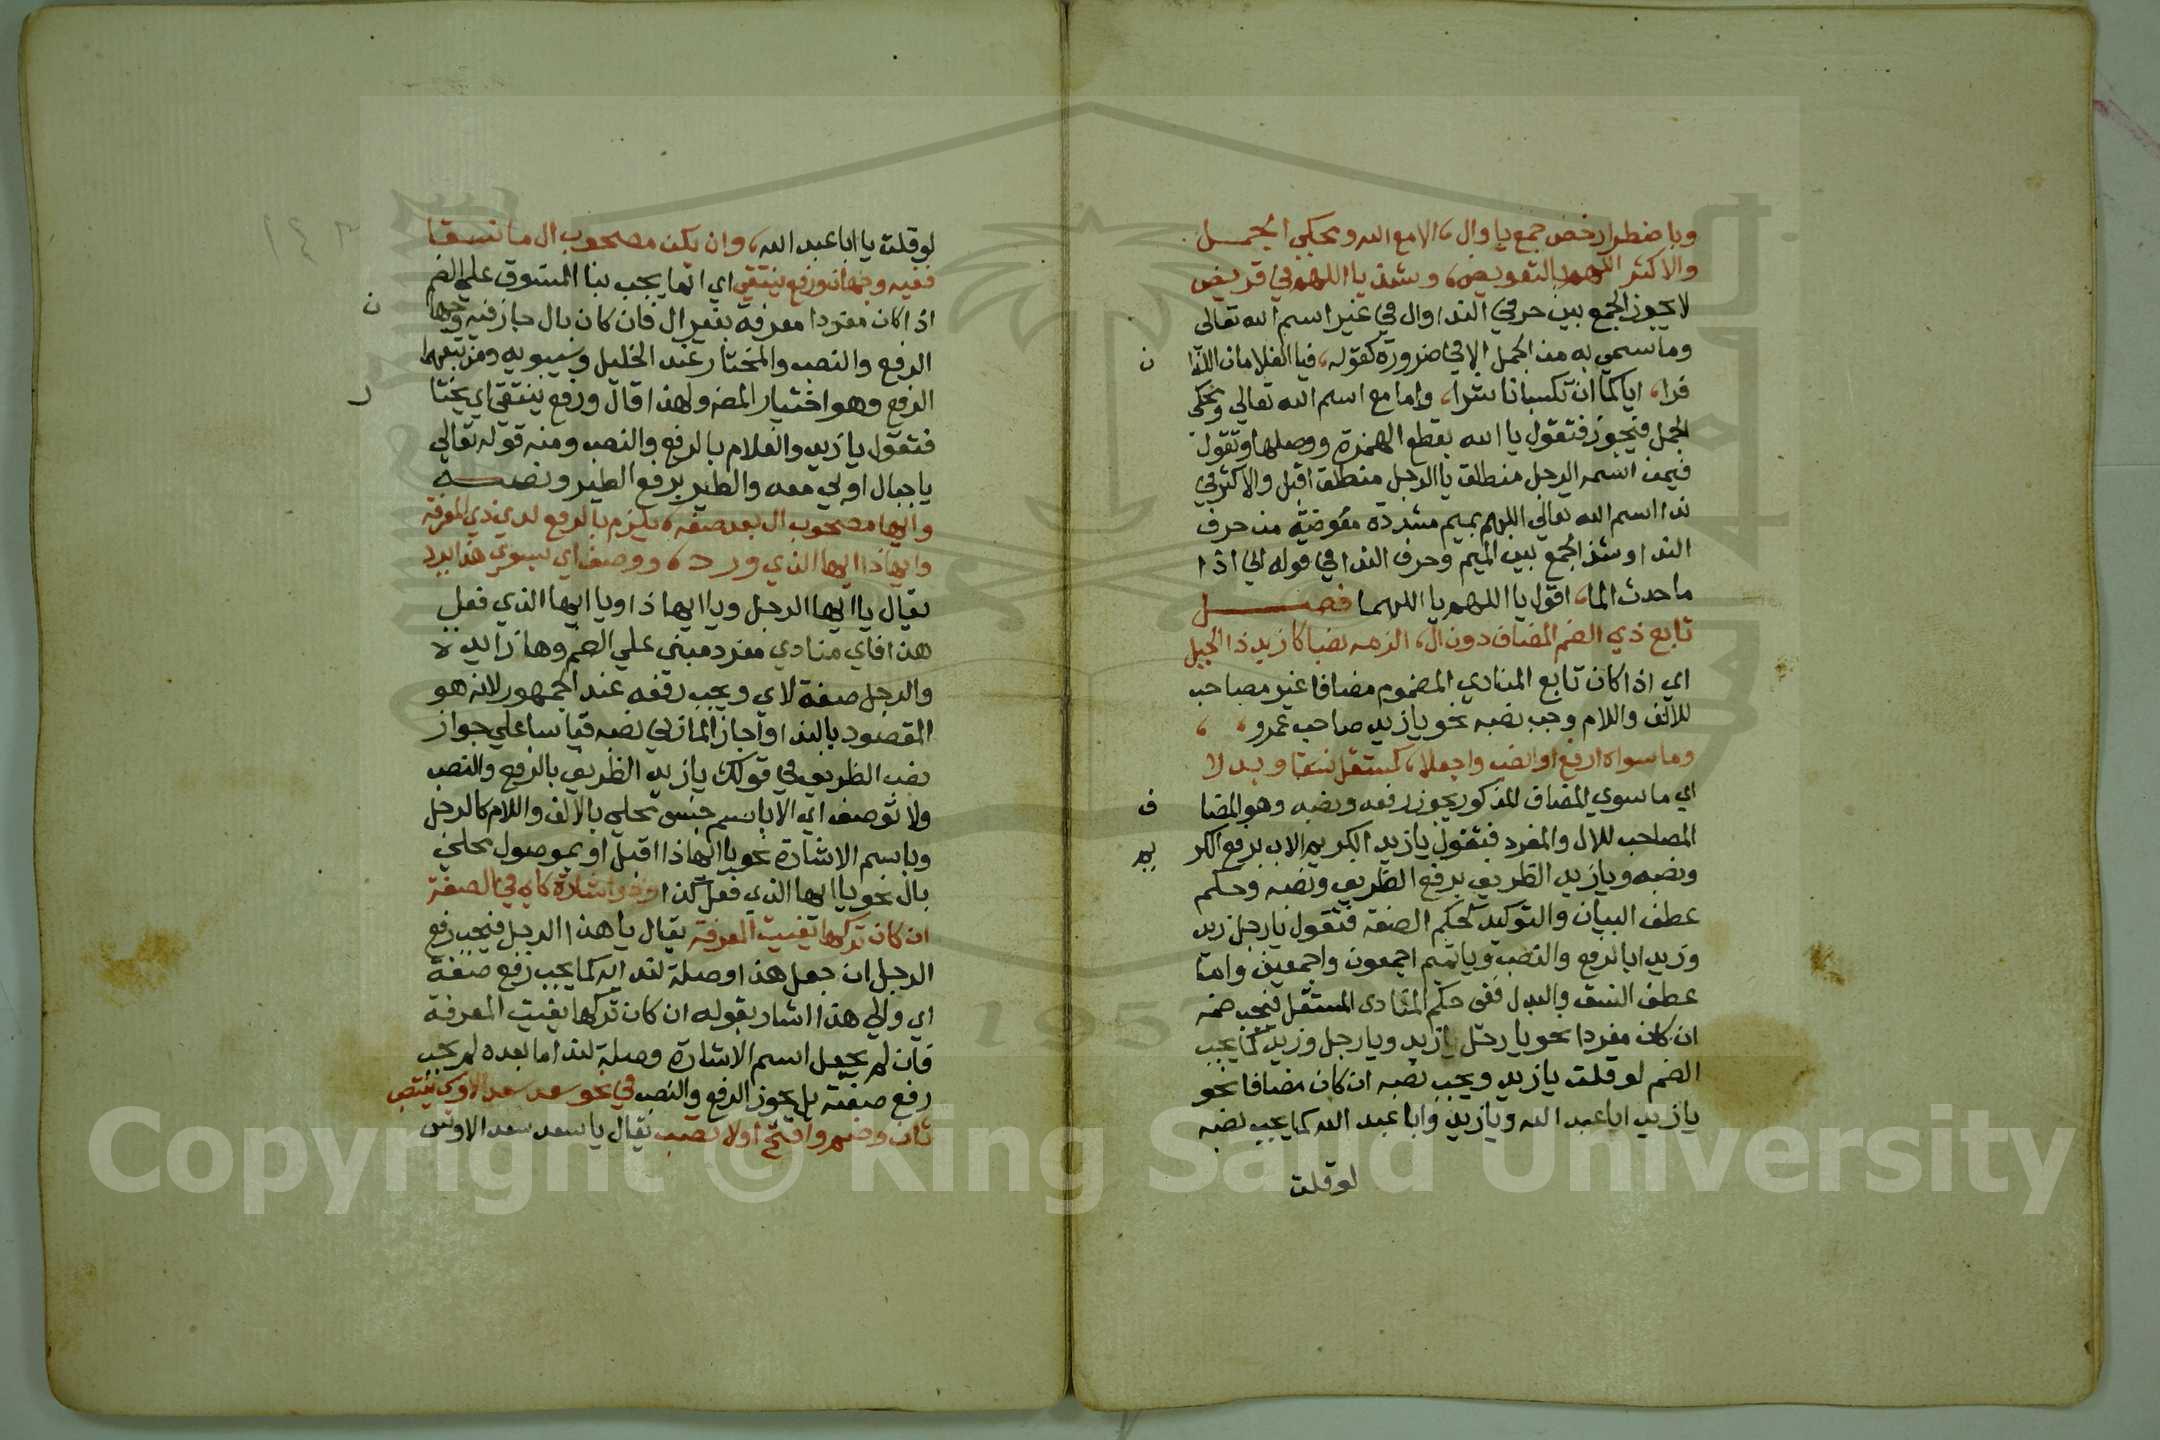 وباضطرار خص جمع يا وال، الا مع الله ومحكي الجمل
والاكثر اللهم بالتعويض، وشذ يا اللهم في قريض
لا يجوز الجمع بين حرف الندا وال في غير اسم الله تعالى
وما سمي به من الجمل الا في ضرورة كقوله، فيا الغلامان اللذا ن
فرا، اياكما ان تكسبانا شرا، واما مع اسم الله تعالي ومحكي
الجمل فيجوز فتقول يا الله بقطع الهمزة ووصلها وتقول
فيمن اسمه الرجل منطلق يا الرجل منطلق اقبل والاكثر في
ندا اسم الله تعالي اللهم بميم مشددة معوضة من حرف
الندا وشذ الجمع بين الميم وحرف الندا في قوله اني اذا
ما حدث الما، اقول يا اللهم يا اللهما فصل
تابع ذي الضم المضاف دون ال، الزمه نصبا كازيد ذا الحيل
اي اذا كان تابع المنادي المضموم مضافا غير مصاحب
للالف واللام وجب نصبه نحو يا زيد صاحب عمرو
وما سواه ارفع او انصب واجعلا، كمستقل نسقا وبدلا
اي ما سوي المضاف المذكور يجوز رفعه ونصبه وهو المضا ف
المصاحب للال والمفرد فتقول يا زيد الكريم الاب برفع الكر يم
ونصبه ويا زيد الظريف برفع الظريف ونصبه وحكم
عطف البيان والتوكيد كحكم الصفة فتقول يا رجل زيد
وزيدا بالرفع والنصب ويا تميم اجمعون واجمعين واما
عطف النسق والبدل ففي حكم المنادى المستقل فيجب ضمه
ان كان مفردا نحو يا رجل زيد ويا رجل وزيد كما يجب
الضم لو قلت يا زيد ويجب نصبه ان كان مضافا نحو
يا زيد ابا عبد الله ويا زيد وابا عبد الله كما يجب نصبه
لو قلت
لو قلت يا ابا عبد الله، وان يكن مصحوب ال ما نسقا
ففيه وجهان ورفع ينتقي اي انما يجب بنا المنسوق علي الضم
اذا كان مفردا معرفة بغير ال فان كان بال جاز فيه وجها ن
الرفع والنصب والمختار عند الخليل وسيبويه ومن تبعهما
الرفع وهو اختيار المصنف ولهذا قال ورفع ينتقي اي يختا ر
فتقول يا زيد والغلام بالرفع والنصب ومنه قوله تعالي
يا جبال اوبي معه والطير برفع الطير ونصبه
وايها مصحوب ال بعد صفة، يلزم بالرفع لدي ذي المعرفة
وايهاذا ايها الذي ورد، ووصف اي بسوي هذا يرد
يقال يا ايها الرجل ويا ايهاذا ويا ايها الذي فعل
هذا فاي منادي مفرد مبني علي الضم وها زايدة
والرجل صفة لاي ويجب رفعه عند الجمهور لانه هو
المقصود بالندا واجاز المازني نصبه قياسا علي جواز
نصب الظريف في قولك يا زيد الظريف بالرفع والنصب
ولا توصف اي الا باسم جنس محلي بالالف واللام كالرجل
وباسم الاشارة نحو يا ايهاذا اقبل او بموصول محلي
بال نحو يا ايها الذي فعل كذا وذو اشارة كاي في الصفة
ان كان تركها يفيت المعرفة يقال يا هذا الرجل فيجب رفع
الرجل ان جعل هذا وصلة لندايه كما يجب رفع صفة
اي والي هذا اشار بقوله ان كان تركها يفيت المعرفة
فان لم يجعل اسم الاشارة وصلة لندا ما بعده لم يجب
رفع صفته بل يجوز الرفع والنصب في نحو سعد سعد الاوس ينتصب
ثان وضم وافتح اولا تصب يقال يا سعد سعد الاوس